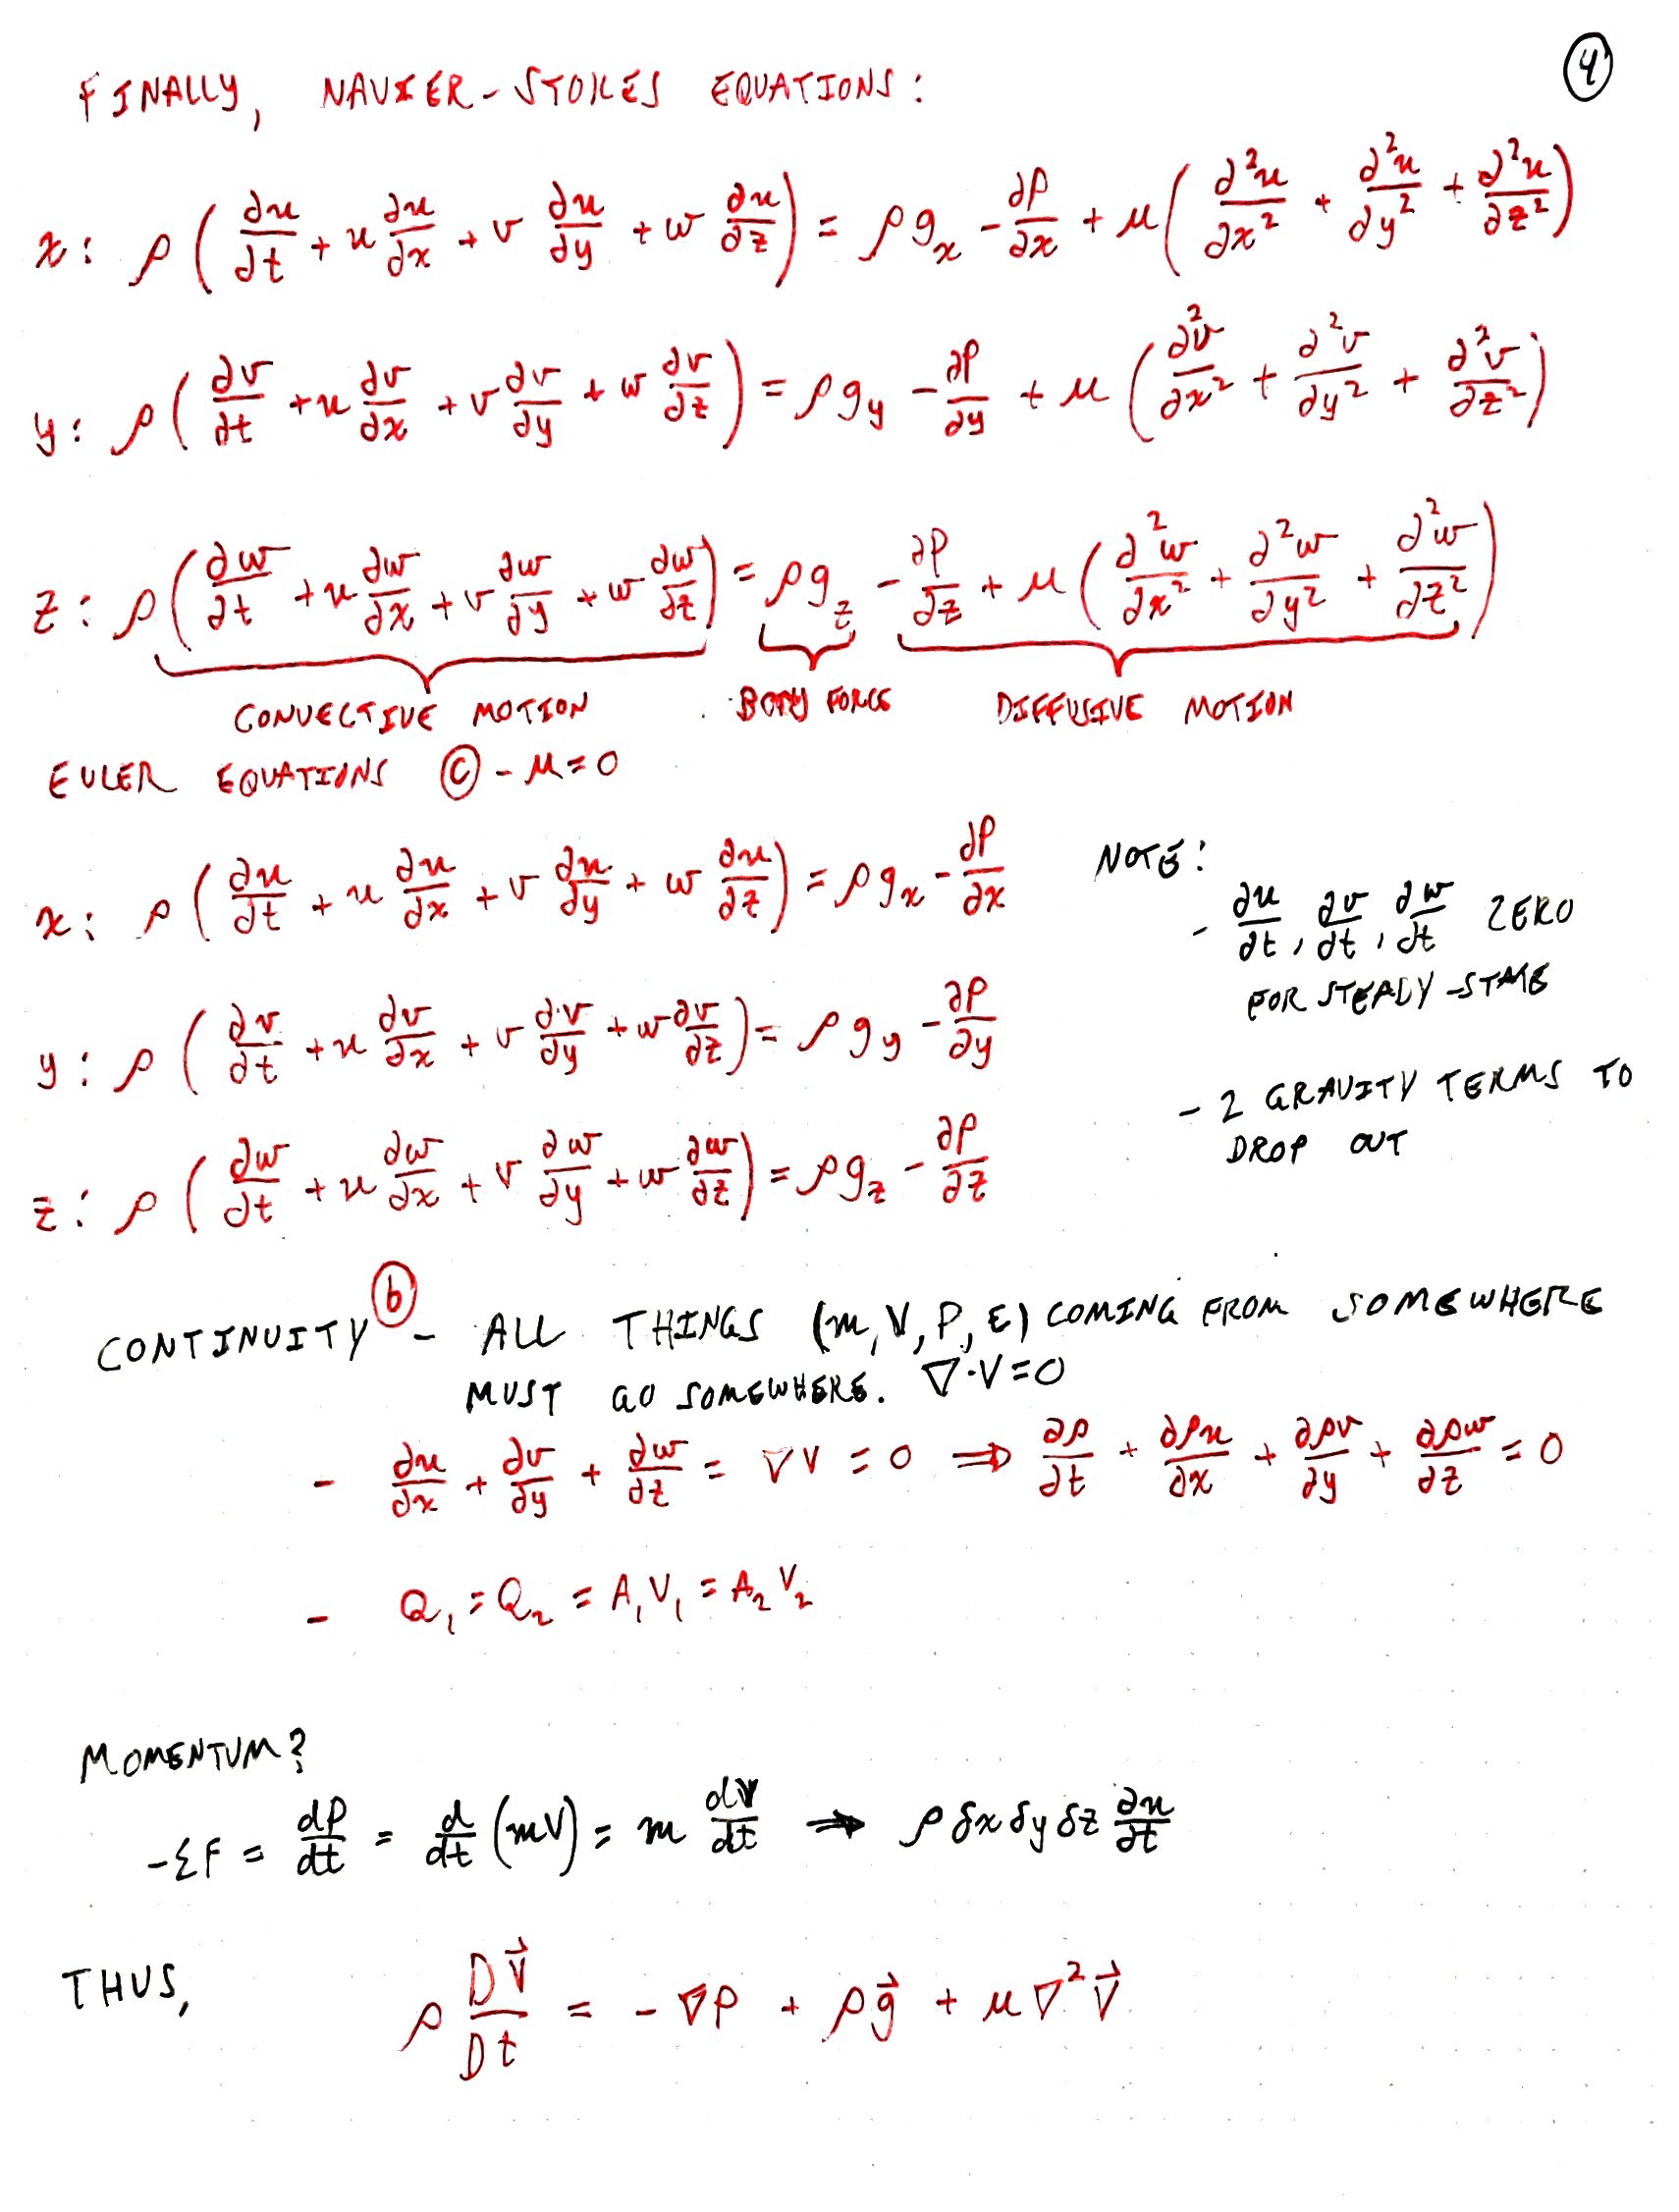 FINALLY, NAVIER-STOKES EQUATIONS: ④
x: ρ(∂u/∂t + u ∂u/∂x + v ∂u/∂y + w ∂u/∂z) = ρg_x - ∂P/∂x + μ(∂²u/∂x² + ∂²u/∂y² + ∂²u/∂z²)
y: ρ(∂v/∂t + u ∂v/∂x + v ∂v/∂y + w ∂v/∂z) = ρg_y - ∂P/∂y + μ(∂²v/∂x² + ∂²v/∂y² + ∂²v/∂z²)
z: ρ(∂w/∂t + u ∂w/∂x + v ∂w/∂y + w ∂w/∂z) = ρg_z - ∂P/∂z + μ(∂²w/∂x² + ∂²w/∂y² + ∂²w/∂z²)
CONVECTIVE MOTION BODY FORCE DIFFUSIVE MOTION
EULER EQUATIONS ⓒ - μ=0
x: ρ(∂u/∂t + u ∂u/∂x + v ∂u/∂y + w ∂u/∂z) = ρg_x - ∂P/∂x
y: ρ(∂v/∂t + u ∂v/∂x + v ∂v/∂y + w ∂v/∂z) = ρg_y - ∂P/∂y
z: ρ(∂w/∂t + u ∂w/∂x + v ∂w/∂y + w ∂w/∂z) = ρg_z - ∂P/∂z
NOTE:
- ∂u/∂t, ∂v/∂t, ∂w/∂t ZERO
FOR STEADY-STATE
- 2 GRAVITY TERMS TO
DROP OUT
CONTINUITY ⓑ - ALL THINGS (m, V, P, E) COMING FROM SOMEWHERE
MUST GO SOMEWHERE. ∇·V=0
- ∂u/∂x + ∂v/∂y + ∂w/∂z = ∇V = 0 ⇒ ∂ρ/∂t + ∂ρu/∂x + ∂ρv/∂y + ∂ρw/∂z = 0
- Q₁ = Q₂ = A₁V₁ = A₂V₂
MOMENTUM?
- ΣF = dP/dt = d/dt (mV) = m dV/dt ⇒ ρ δx δy δz ∂u/∂t
THUS, ρ DV⃗/Dt = -∇P + ρg⃗ + μ∇²V⃗